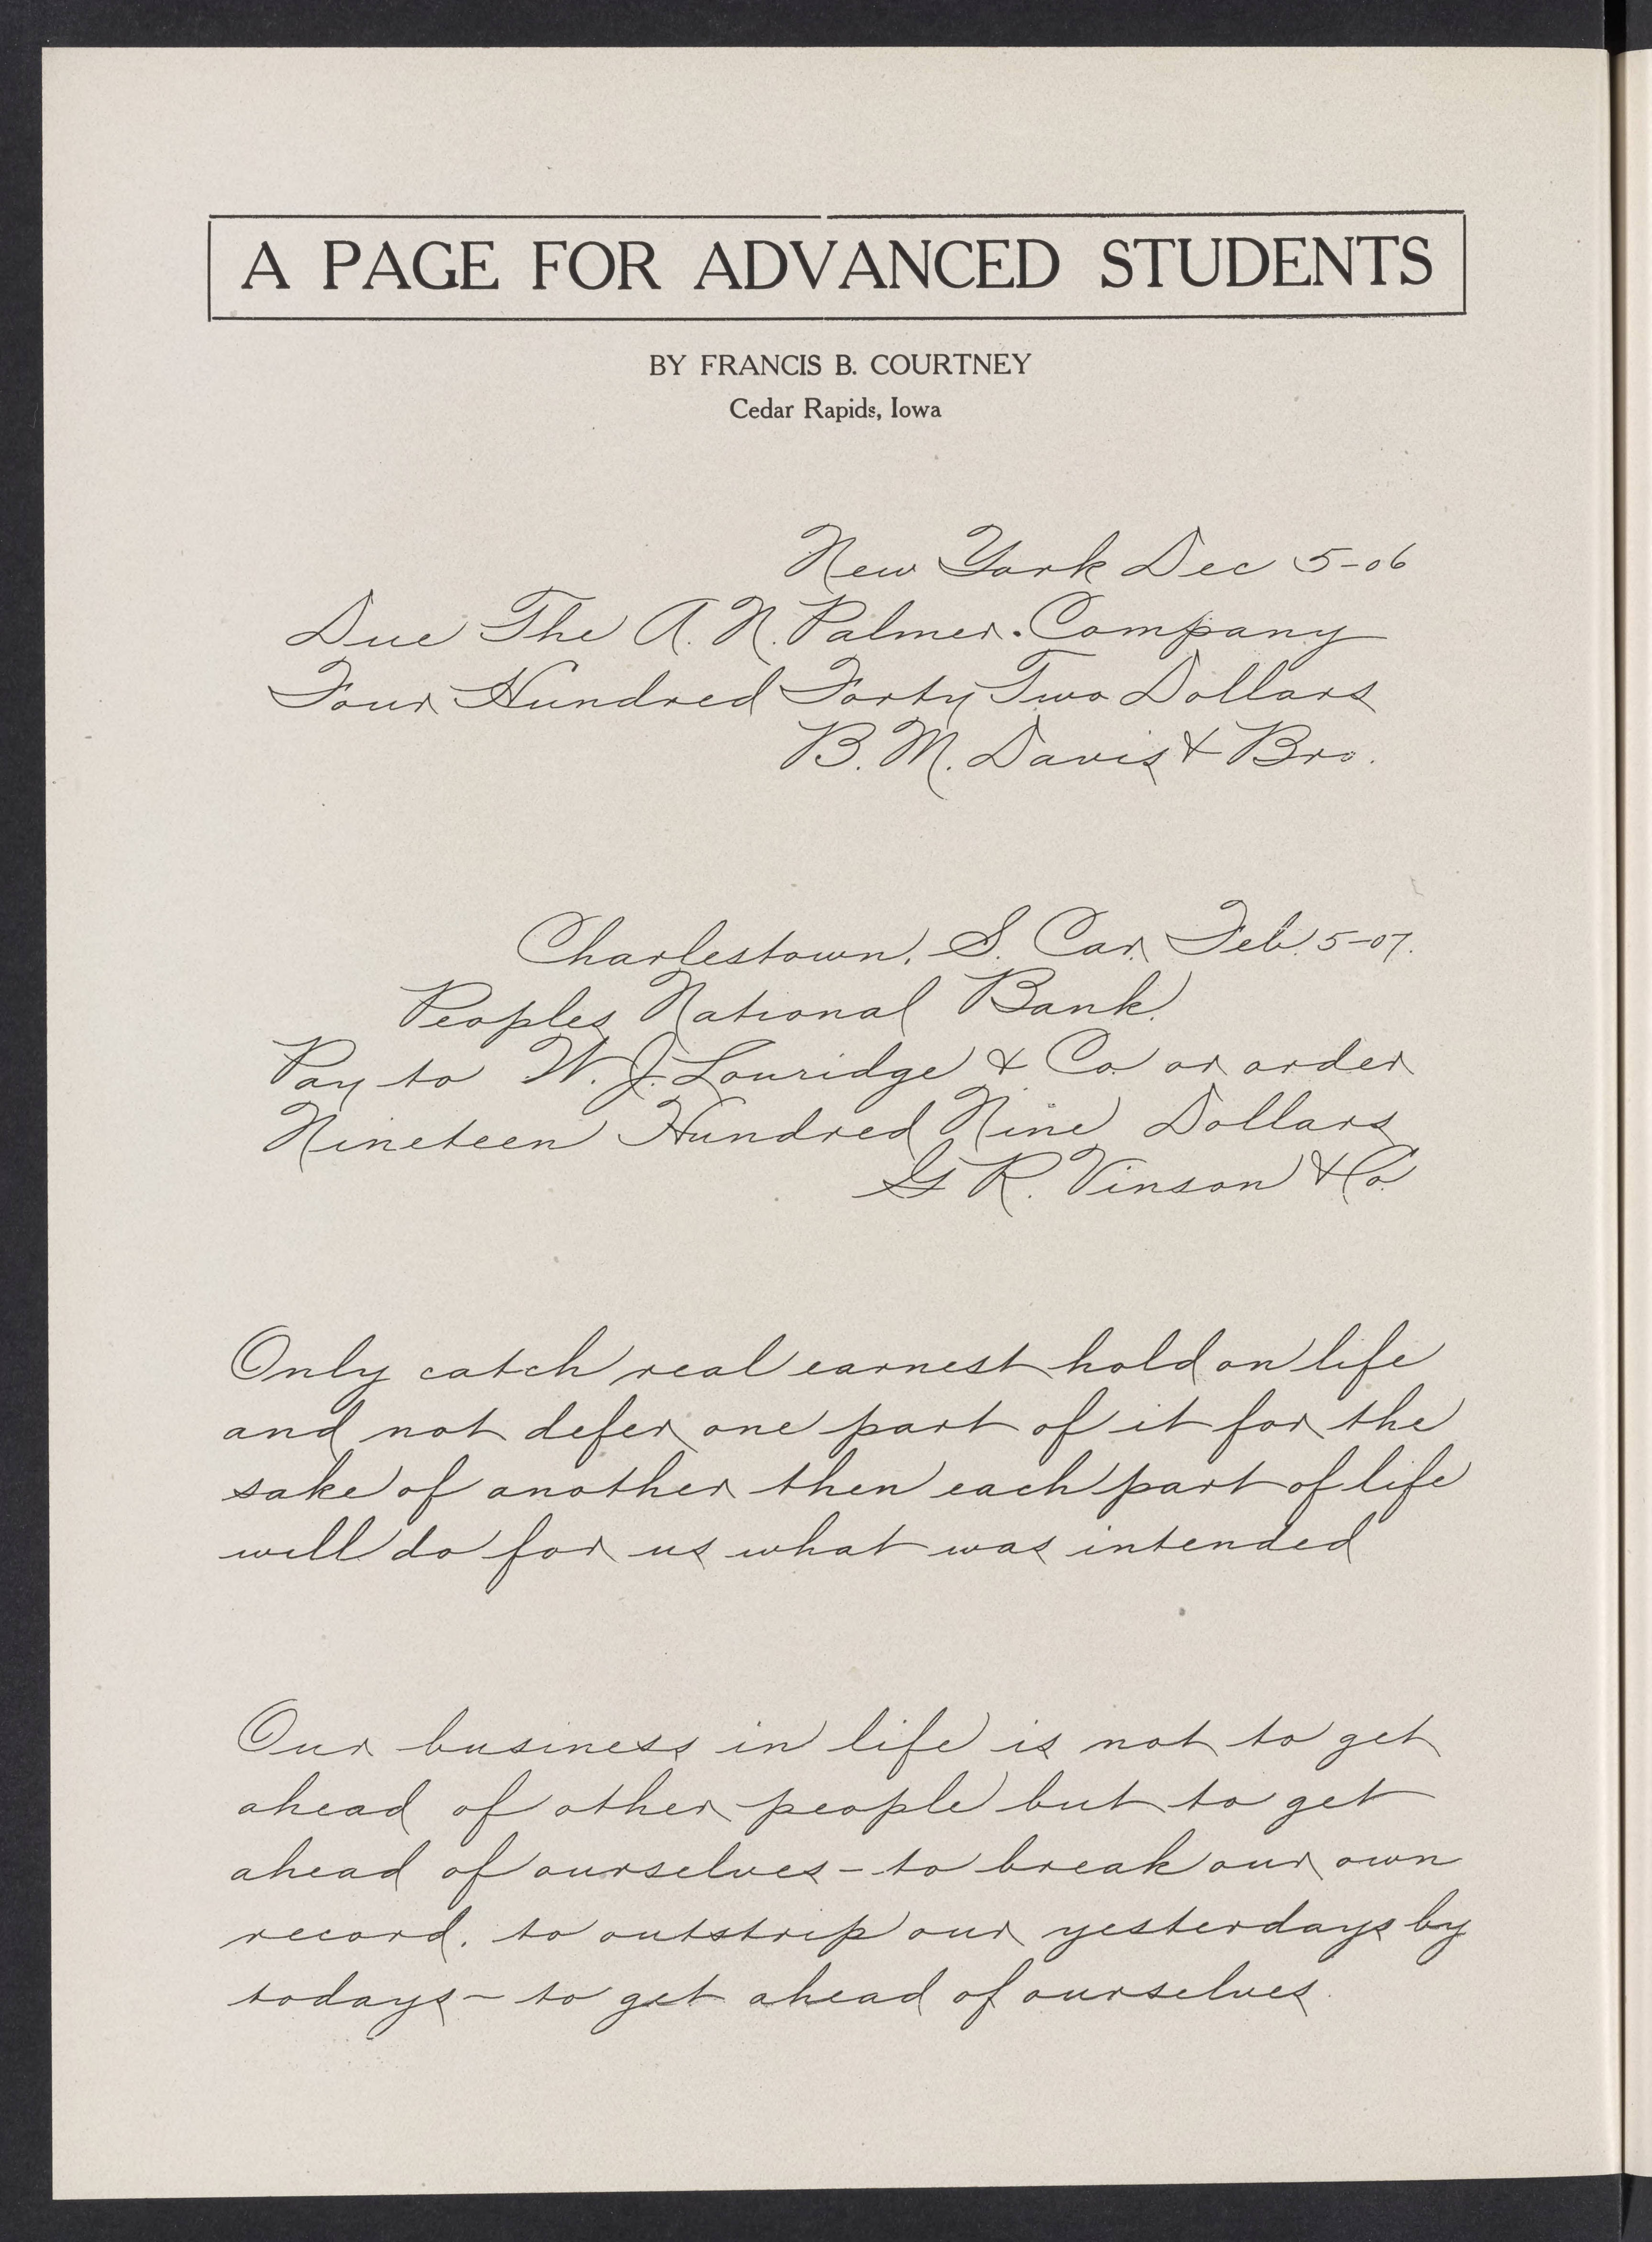 A PAGE FOR ADVANCED STUDENTS
BY FRANCIS B. COURTNEY
Cedar Rapids, Iowa
New York Dec 5-06
Due The A. N. Palmer. Company
Four Hundred Forty Two Dollars
B. M. Davis & Bro.
Charlestown, S. Car. Feb. 5-07.
Peoples National Bank.
Pay to W. J. Louridge & Co. or order
Nineteen Hundred Nine Dollars
G R. Vinson & Co.
Only catch real earnest hold on life
and not defer one part of it for the
sake of another then each part of life
will do for us what was intended
Our business in life is not to get
ahead of other people but to get
ahead of ourselves - to break our own
record, to outstrip our yesterdays by
todays - to get ahead of ourselves.